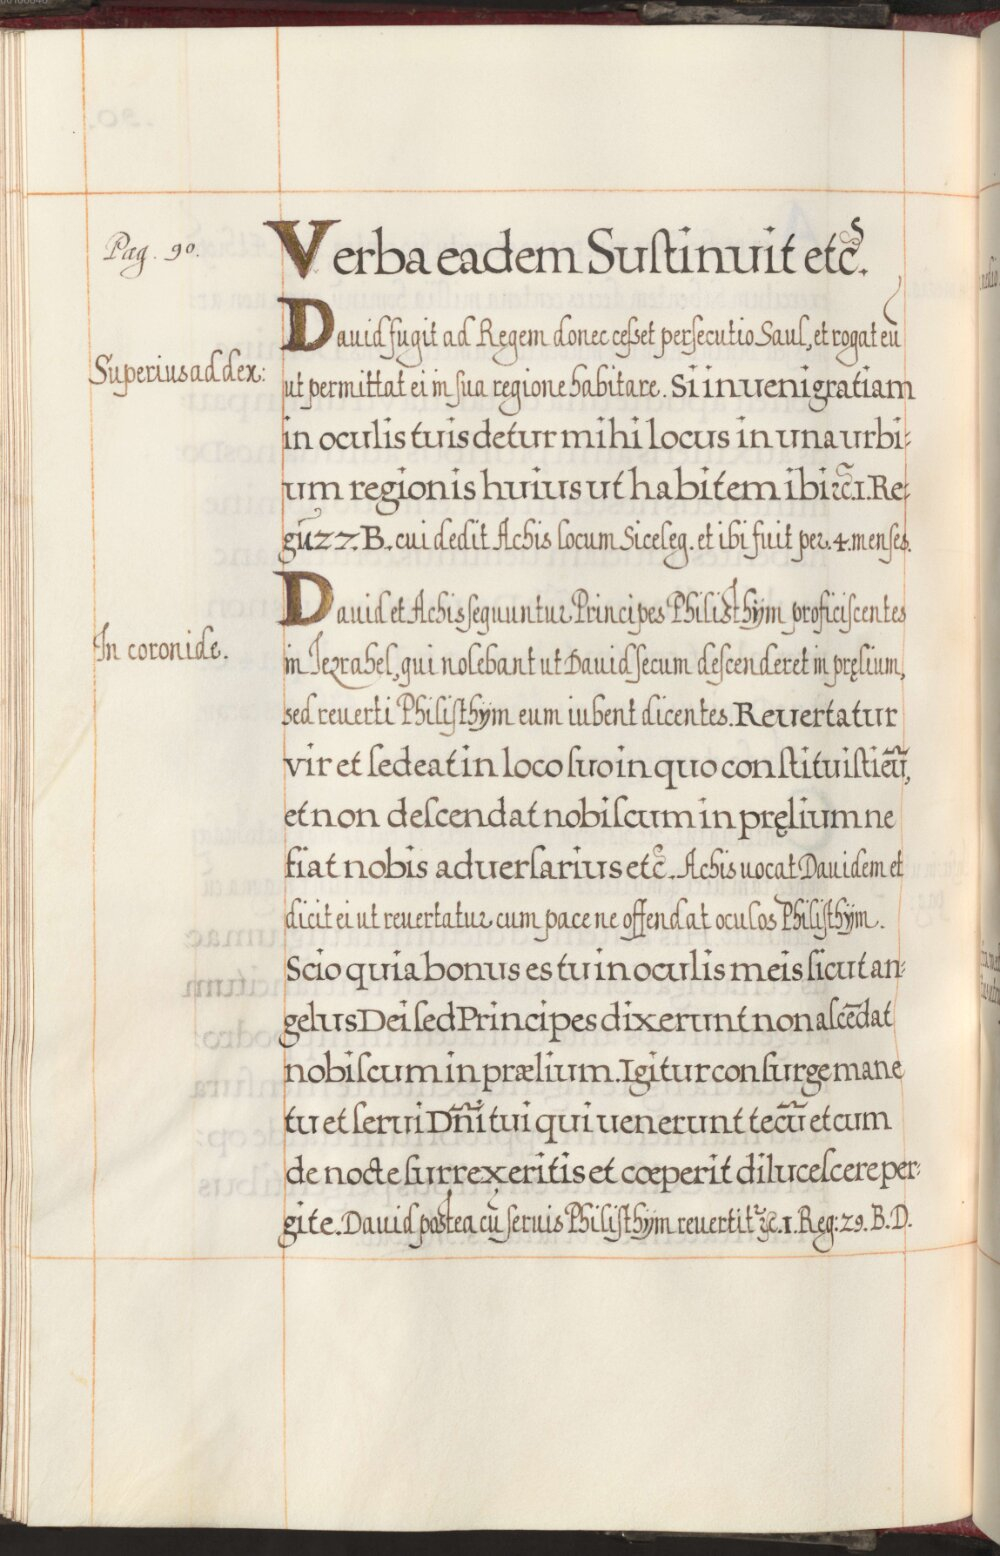 Pag. 90.
Verba eadem Suſtinuit etc̃.
Superius ad dex:
Dauid fugit ad Regem donec ceſſet perſecutio Saul, et rogat eũ
ut permittat ei in ſua regione habitare. Si inveni gratiam
in oculis tuis detur mihi locus in una urbi-
um regionis huius ut habitem ibi ⁊c̃. 1. Re-
gũ 27. B. cui dedit Achis locum Siceleg. et ibi fuit per 4. menſes.
In coronide.
Dauid et Achis ſequuntur Principes Philiſthÿm proficiſcentes
in Jezrahel, qui nolebant ut Dauid ſecum deſcenderet in pręlium,
sed reuerti Philiſthÿm eum iubent dicentes. Revertatur
vir et ſedeat in loco ſuo in quo conſtituiſti eũ,
et non deſcendat nobiſcum in pręlium ne
fiat nobis adverſarius etc̃. Achis uocat Dauidem et
dicit ei ut reuertatur cum pace ne offendat oculos Philiſthÿm.
Scio quia bonus es tu in oculis meis ſicut an-
gelus Dei ſed Principes dixerunt non aſcẽdat
nobiſcum in prælium. Igitur conſurge mane
tu et ſervi Dñi tui qui venerunt tecũ et cum
de nocte ſurrexeritis et cœperit diluceſcere per-
gite. Dauid poſtea cũ ſeruis Philiſthÿm reuertitr ⁊c. 1. Reg: 29. B. D.